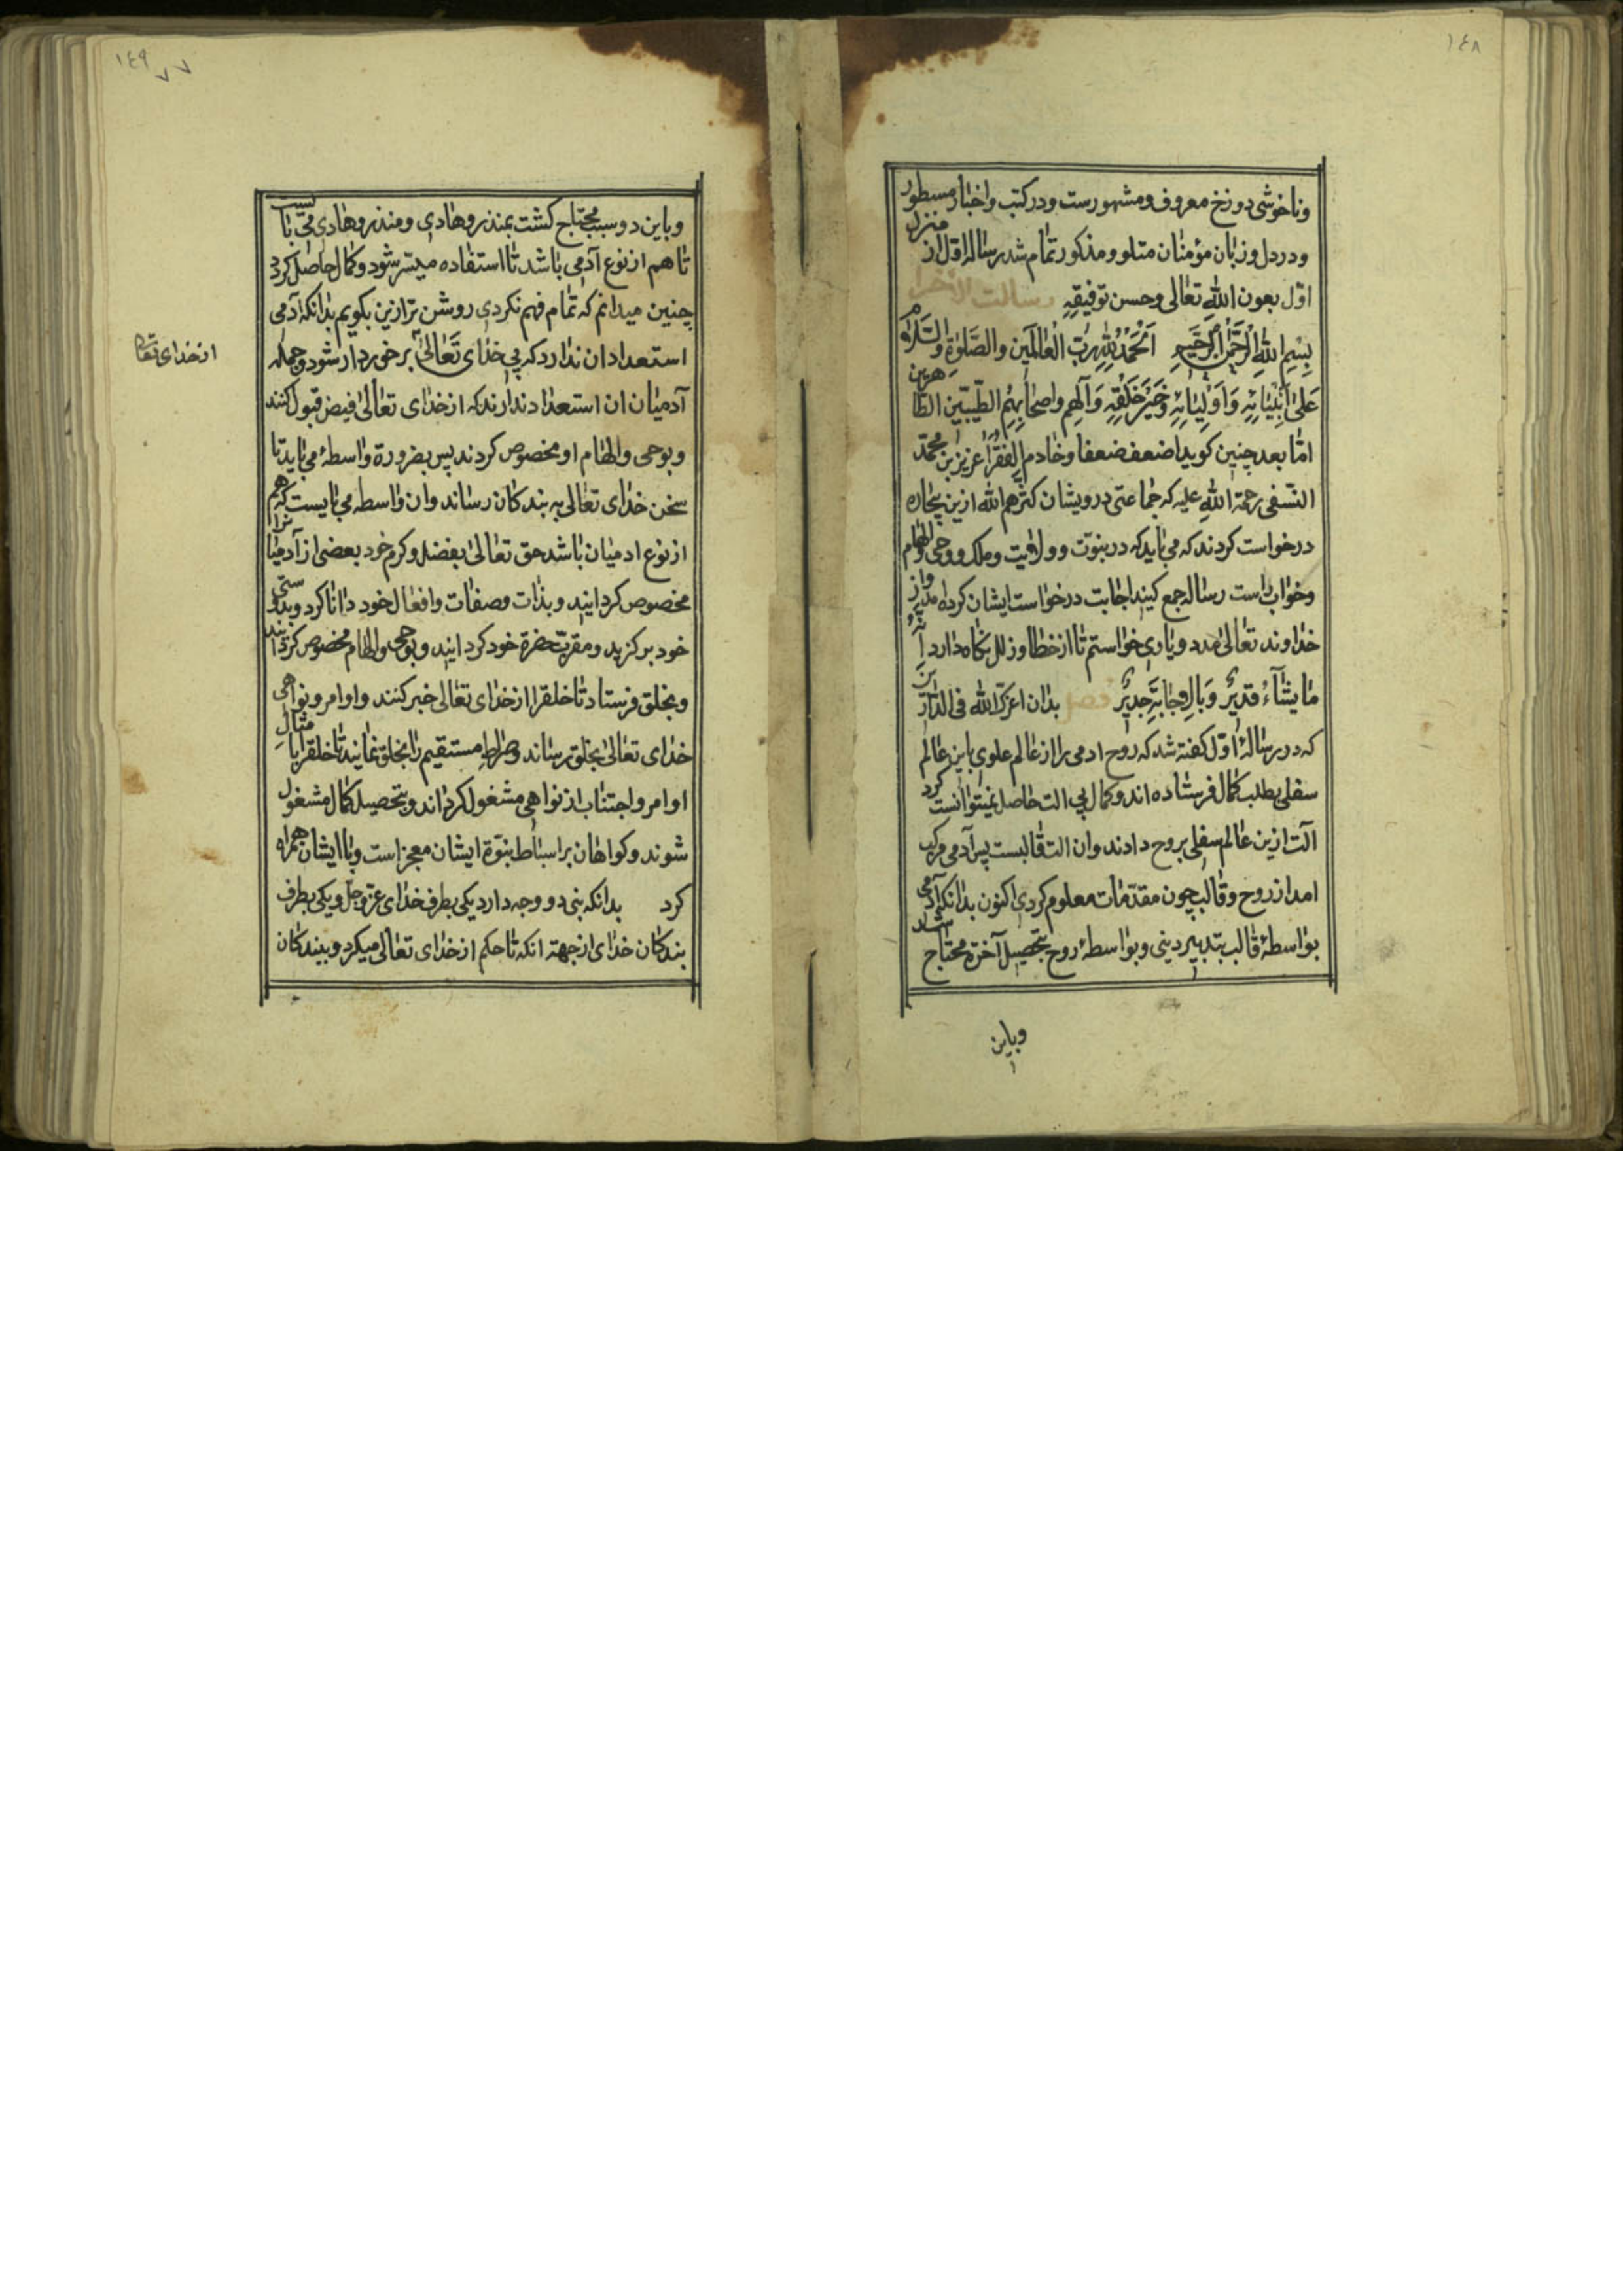 ١٤٨
وناخوشی دوزخ معروف ومشهورست ودر کتب واخبار مسطور
ودر دل وزبان مؤمنان متلو ومذکور تمام شد رساله اوّل از منزل
اوّل بعون الله تعالی وحسن توفیقِهِ رسالت الاخر
بِسْمِ اللهِ الرَّحْمٰنِ الرَّحیمِ اَلْحَمْدُ لِلّٰهِ رَبِّ الْعٰالَمین والصَّلوٰةِ والسَّلام
عَلیٰ اَنْبِیٰائِهِ وَاَوْلِیٰائِهِ وَخَیْرِ خَلْقِهِ وَآلهِم واصحٰابِهِمُ الطَّیّبین الطّاهرین
امّا بعد چنین کوید اضعف ضعفا وخادم الفقرا عزیز بن محمّد
النّسفی رحمة اللهِ علیه که جماعتی درویشان کثرهم الله ازین بیچاره
درخواست کردند که می باید که در نبوّت وولایت وملک ووحی والهام
وخواب راست رساله جمع کنید اجابت درخواست ایشان کردم واز
خداوند تعالیٰ مدد ویاری خواستم تا از خطا وزلل نکاه دارد اِنَّهُ
مٰا یشٰآءُ قدیرٌ وَبالاِجٰابَةِ جدیرٌ فصل بدان اعزّک الله فی الدّارین
که در رسالهٔ اوّل کفته شد که روح ادمی را از عالم علوی باین عالم
سفلی بطلب کمال فرستاده اند وکمال بی الت حاصل نمیتوانست کرد
آلت ازین عالم سفلی بروح دادند وان الت قالبست پس آدمی مرکب
امد از روح وقالب چون مقدّمات معلوم کردی اکنون بدانکه آدمی
بواسطهٔ قالب بتدبیر دینی وبواسطهٔ روح بتحصیل آخرة محتاج شد
وباین
١٤٩
٧٧
وباین دو سبب محتاج کشت بمنذر وهادی ومنذر وهادی می بایست
تا هم از نوع آدمی باشد تا استفاده میسّر شود وکمال حاصل کردد
چنین میدانم که تمام فهم نکردی روشن تر ازین بکویم بدانکه آدمی
استعداد ان ندارد که بی خدای تَعالیٰ برخوردار شود وجمله
از خدای تعالی
آدمیان ان استعداد ندارند که از خدای تعالیٰ فیض قبول کنند
وبوحی والهام او مخصوص کردند پس بضرورة واسطهٔ می باید تا
سخن خدای تعالی به بندکان رساند وان واسطه می بایست که هم
از نوع ادمیان باشد حق تعالیٰ بفضل وکرم خود بعضی از آدمیانرا
مخصوص کردانید وبذات وصفات وافعال خود دانا کرد وبدوستی
خود برکزید ومقرّب حضرة خود کردانید وبوحی والهام مخصوص کردانید
وبخلق فرستاد تا خلقرا از خدای تعالی خبر کنند واوامر ونواهی
خدای تعالیٰ بخلق رساند وصراطِ مستقیم را بخلق نمایند تا خلقرا بامتثالِ
اوامر واجتناب از نواهی مشغول کرداند وبتحصیل کمال مشغول
شوند وکواهان بر اسباط نبوّة ایشان معجز است وبا ایشان همراه
کرد بدانکه نبی دو وجه دارد یکی بطرف خدای عزّ وجلّ ویکی بطرف
بندکان خدای از جهة انکه تا حکم از خدای تعالی میکرد وببندکان